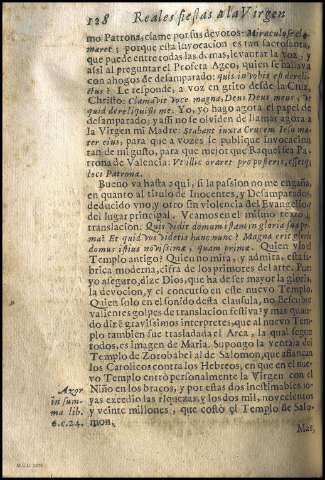 128 Reales fiestas a la Virgen
mo Patrona, clame por sus devotos:
maret; porque esta invocacion es tan sacrosanta,
que puede entre todas las demas, levantar la voz, y
assi al preguntar el Profeta Ageo, quien se hallava
con ahogos de desamparado: quis in vobis est derelic-
tus? Le responde, a voz en grito desde la Cruz,
Christo: Clamavit voce magna, Deus Deus meus, ut
quid dereliquisti me. Yo, yo hago agora el papel de
desamparado, y assi no se olviden de llamar agora a
la Virgen mi Madre: Stabant iuxta Crucem Iesu ma-
ter eius, para que a vozes se publique invocacion
tan de mi gusto, para que mejor que Baquo sea Pa-
trona de Valencia: Vt illis oraret pro posteris, esset
loci Patrona.
Bueno va hasta aqui, si la passion no me engaña,
en quanto al titulo de Inocentes, y Desamparados,
deducido vno, y otro sin violencia del Evangelio
del lugar principal. Veamos en el mismo texto
translacion. Quis vidit domum istam in gloria sua pri-
ma? Et quid vos videtis hanc nunc? Magna erit gloria
domus istius novissima quam prima. Quien vio el
Templo antigo? Quien no mira, y admira, esta fa-
brica moderna, cifra de los primores del arte. Pues
yo aseguro, dize Dios, que ha de ser mayor la gloria,
la devocion, y el concurso en este nuevo Templo.
Quien solo en el sonido desta clausula, no descubre
valientes golpes de translacion festiva? y mas quan-
do dizē gravissimos interpretes, que al nuevo Tem-
plo tambien fue trasladada el Arca, la qual segun
todos, es imagen de Maria. Supongo la ventaja del
Templo de Zorobabel al de Salomon, que afiançan
los Catolicos contra los Hebreos, en que en el nue-
vo Templo entrò personalmente la Virgen con el
Azor Niño en los braços, y por estas dos inestimables jo-
in sum- yas excedio las riquezas, y los dos mil, novecientos
ma lib. y veinte millones, que costò el Templo de Salo-
6.c.24. mon.
Mas,